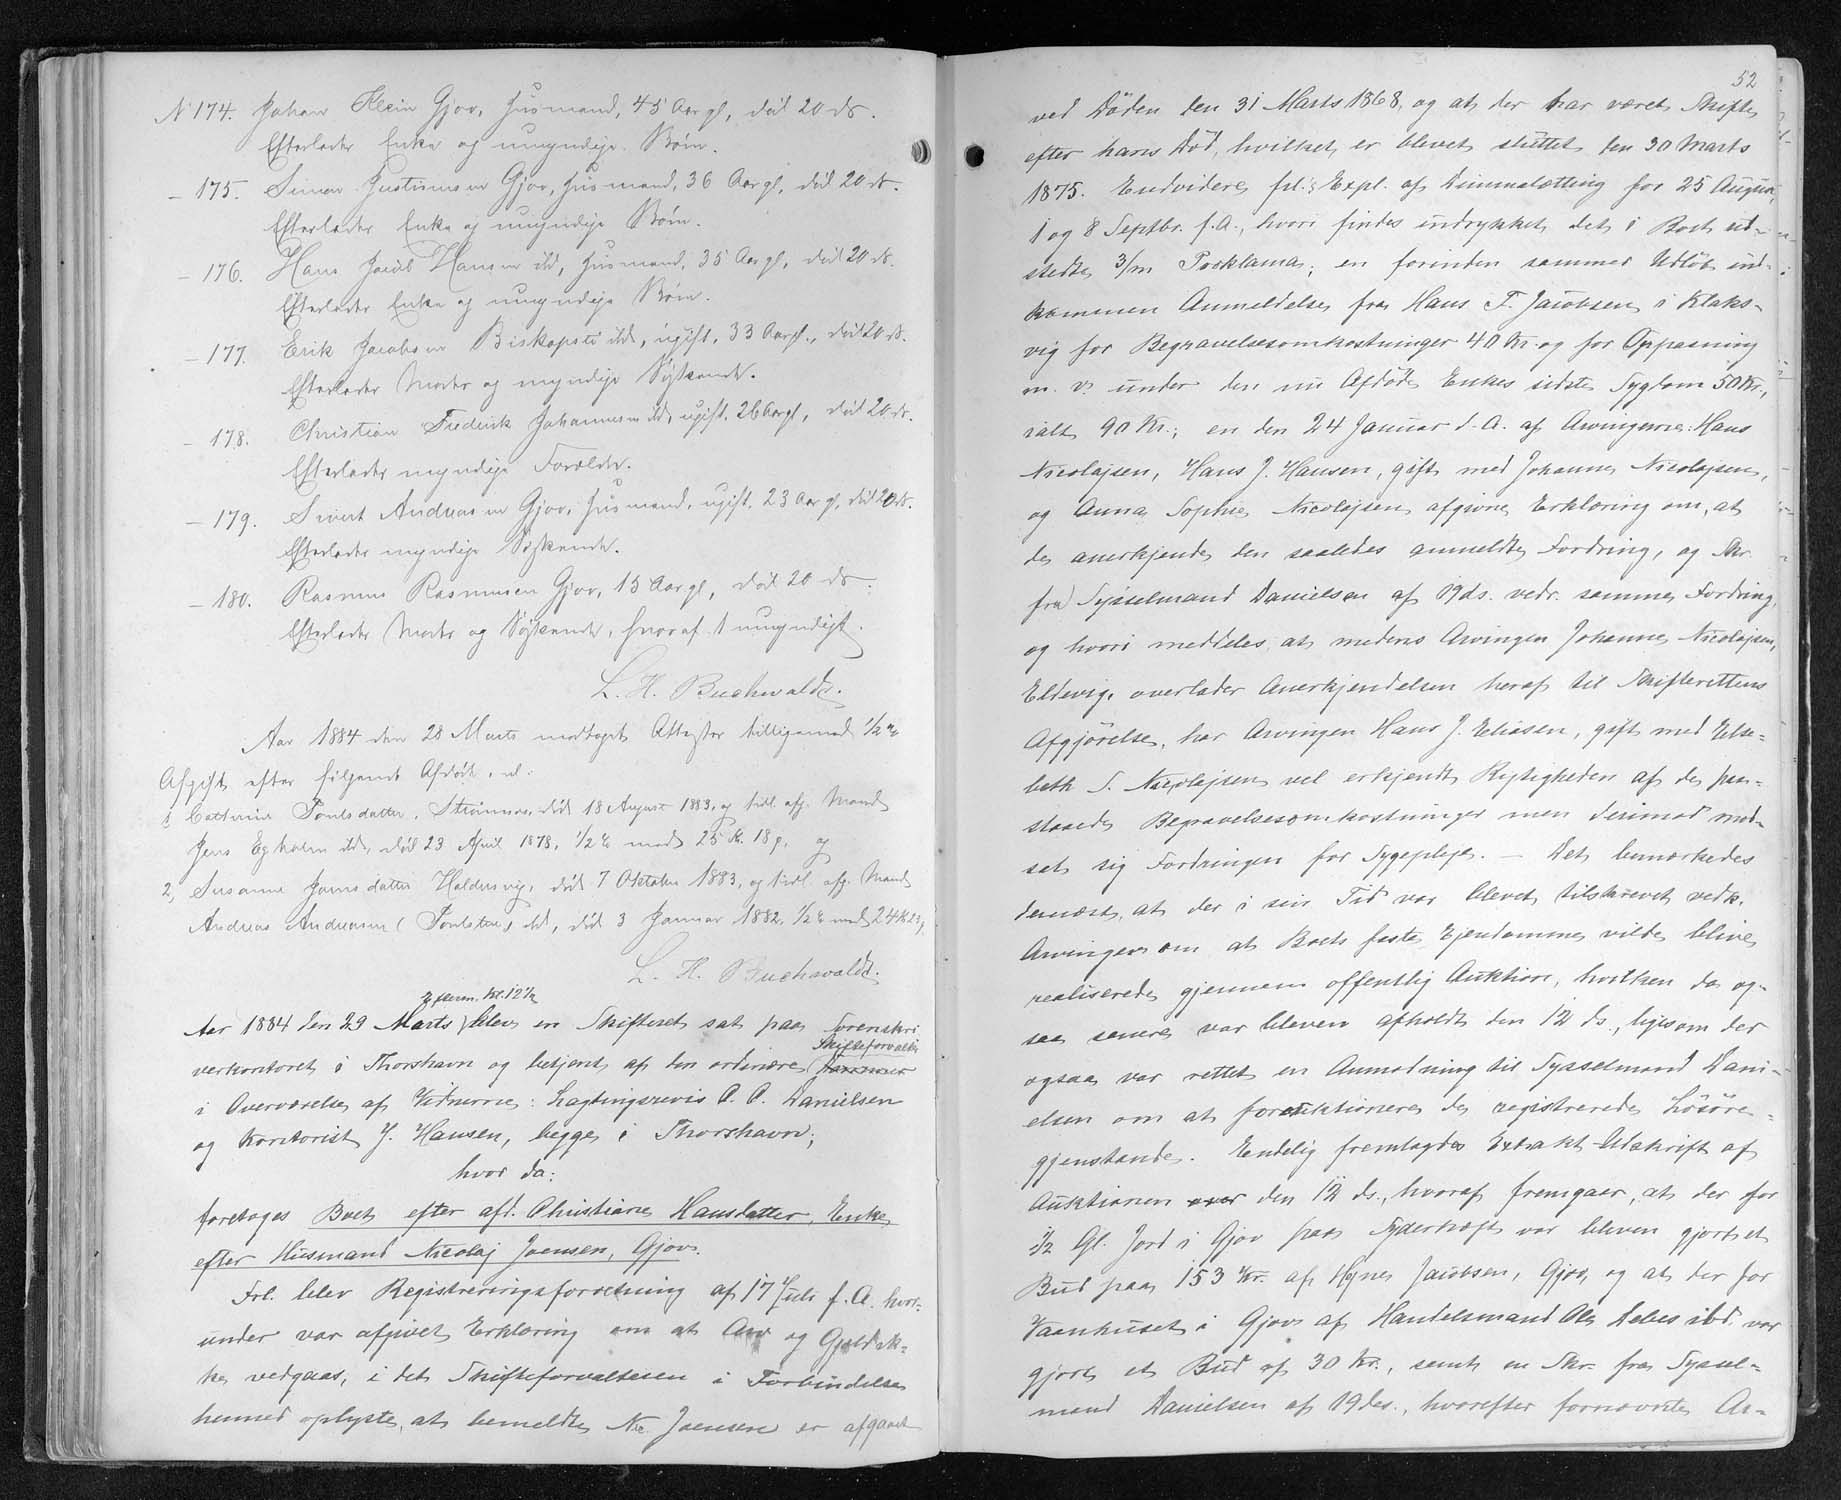 N 174. Johan Klein Gjov, Husmand, 45 Aar gl, död 20 ds.
Efterlader Enke og umyndige Börn.
- 175. Simon Justinussen Gjov, Husmand, 36 Aar gl, död 20 ds.
Efterlader Enke og umyndige Börn.
- 176. Hans Jacob Hansen ibd, Husmand, 35 Aar gl, död 20 ds.
Efterlader Enke og umyndige Börn.
- 177. Erik Jacobsen Biskopstö ibd, ugift, 33 Aar gl., död 20 ds.
Efterlader Moder og myndige Söskende.
- 178. Christian Frederik Johannesen ibd, ugift, 26 Aar gl, död 20 ds.
Efterlader myndige Forældre.
- 179. Sivert Andreasen Gjov, Husmand, ugift, 23 Aar gl, död 20 ds.
Efterlader myndige Söskende.
- 180. Rasmus Rasmussen Gjov, 15 Aar gl, död 20 ds.
Efterlader Moder og Söskende, hvoraf 1 umyndigt.
L. H. Buchwaldt.
Aar 1884 den 28 Marts modtaget Attester tilligemed 1/2 %
Afgift efter følgende Afdöde, nl:
1, Cathrine Poulsdatter, Strömnæs, död 18 August 1883, og tidl. afg. Mand
Jens Egholm ibd, död 23 April 1878, 1/2 % med 25 K. 18 p, og
2, Susanne Joensdatter Haldersvig, död 7 Oktober 1883, og tidl. afg. Mand
Andreas Andreasen (Poulsen) ibd, död 3 Januar 1882, 1/2 % med 24 K 23,
L. H. Buchwaldt.
Efterm. Kl. 12 1/2
Aar 1884 den 29 Marts blev en Skifteret sat paa Sorenskri-
Skifteforvalter
verkontoret i Thorshavn og betjent af den ordinære
i Overværelse af Vidnerne: Lagtingsrevis. P. Danielsen
og Kontorist J. Hansen, begge i Thorshavn;
hvor da:
foretoges Boet efter afd. Christiane Hansdatter, Enke
efter Husmand Nicolaj Joensen, Gjov.
Frl. blev Registreringsforretning af 17 Juli f. A. hvor-
under var afgivet Erklæring om at Arv og Gjæld ik-
ke vedgaas, i det Skifteforvalteren i Forbindelse
hermed oplyste, at bemeldte Nic. Joensen er afgaaet
52
ved Döden den 31 Marts 1868, og at der har været Skifte
efter hans Död, hvilket er blevet sluttet den 30 Marts
1875. Endvidere frl. 3 Expl. af Dimmalætting for 25 August,
1 og 8 Septbr. f. A., hvori findes indrykket det i Boet ud-
stedte 3/m Proklama; en forinden sammes Udløb ind-
kommen Anmeldelse fra Hans T. Jacobsen i Klaks-
vig for Begravelsesomkostninger 40 Kr. og for Oppasning
m. v. under den nu Afdöde Enkes sidste Sygdom 50 Kr.,
ialt 90 Kr.; en den 24 Januar d. A. af Arvingerne: Hans
Nicolajsen, Hans J. Hansen, gift med Johanne Nicolajsen,
og Anna Sophie Nicolajsen afgiven Erklæring om, at
de anerkjende den saaledes anmeldte Fordring, og Skr.
fra Sysselmand Danielsen af 19 ds. vedr. samme Fordring,
og hvori meddeles, at medens Arvingen Johanne Nicolajsen,
Eldevig, overlader Anerkjendelsen heraf til Skifterettens
Afgjörelse, har Arvingen Hans J. Eliasen, gift med Else-
beth S. Nicolajsen vel erkjendt Rigtigheden af de paa-
staaede Begravelsesomkostninger men derimod mod-
sat sig Fordringen for Sygepleje. — Det bemærkedes
dernæst, at der i sin Tid var blevet tilskrevet vedk.
Arvinger om at Boets faste Ejendomme vilde blive
realiserede gjennem offentlig Auktion, hvilken da og-
saa senere var bleven afholdt den 12 ds., ligesom der
ogsaa var rettet en Anmodning til Sysselmand Dani-
elsen om at forauktionere de registrerede Lösöre-
gjenstande. Endelig fremlagdes Extrakt-Udskrift af
Auktionen den 12 ds., hvoraf fremgaar, at der for
1/2 Gl. Jord i Gjov paa Syderhoft var bleven gjort et
Bud paa 153 Kr. af Hynes Jacobsen, Gjov, og at der for
Vaanhuset i Gjov af Handelsmand Ole Debes ibd. var
gjort et Bud af 30 Kr., samt en Skr. fra Syssel-
mand Danielsen af 19 ds., hvorefter fornævnte Ar-